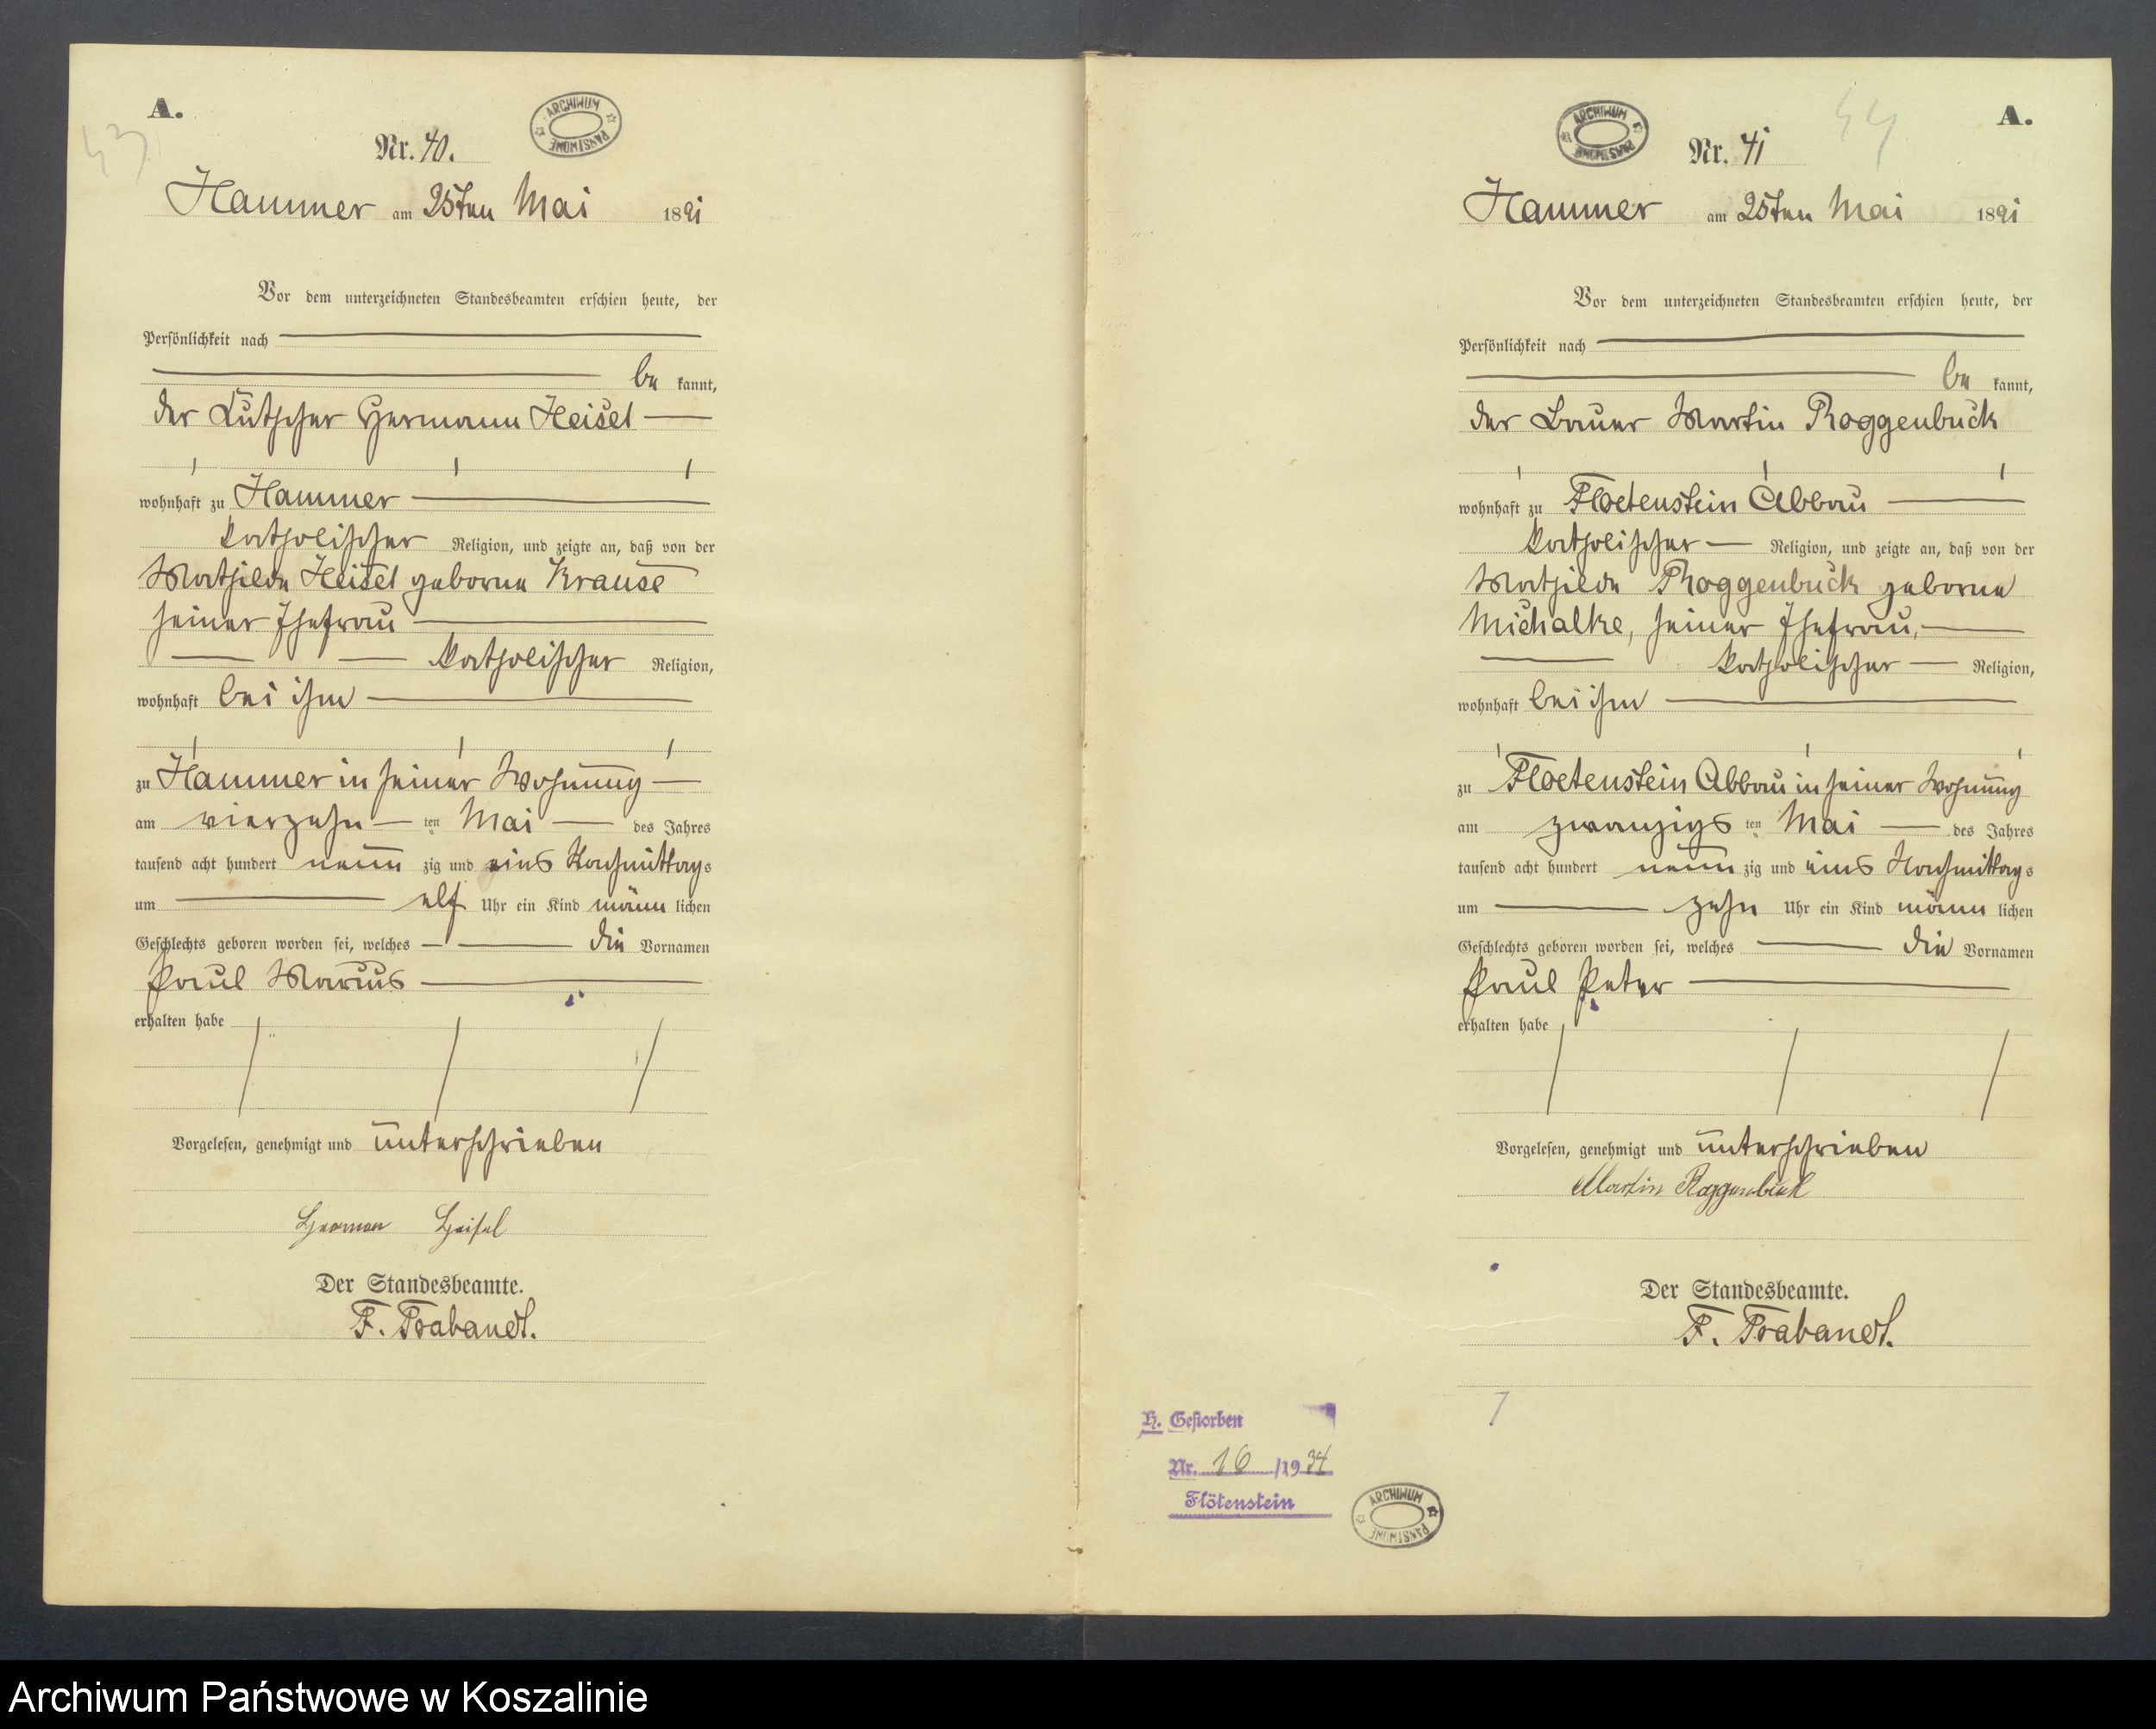 A.
43
Nr. 40.
ARCHIWUM PAŃSTWOWE
Hammer am 25ten Mai 1891
Vor dem unterzeichneten Standesbeamten erschien heute, der
Persönlichkeit nach
be kannt,
der Kutscher Hermann Heisel
wohnhaft zu Hammer
katholischer Religion, und zeigte an, daß von der
Mathilde Heisel geborne Krause
seiner Ehefrau
katholischer Religion,
wohnhaft bei ihm
zu Hammer in seiner Wohnung
am vierzehn ten Mai des Jahres
tausend acht hundert neun zig und eins Nachmittags
um elf Uhr ein Kind männ lichen
Geschlechts geboren worden sei, welches die Vornamen
Paul Marius
erhalten habe
Vorgelesen, genehmigt und unterschrieben
Herman Heisel
Der Standesbeamte.
F. Trabandt.
ARCHIWUM PAŃSTWOWE
44
A.
Nr. 41
Hammer am 25ten Mai 1891
Vor dem unterzeichneten Standesbeamten erschien heute, der
Persönlichkeit nach
be kannt,
der Bauer Martin Roggenbuck
wohnhaft zu Floetenstein Abbau
katholischer Religion, und zeigte an, daß von der
Mathilde Roggenbuck geborne
Michalke, seiner Ehefrau,
katholischer Religion,
wohnhaft bei ihm
zu Floetenstein Abbau in seiner Wohnung
am zwanzigs ten Mai des Jahres
tausend acht hundert neun zig und eins Nachmittags
um zehn Uhr ein Kind männ lichen
Geschlechts geboren worden sei, welches die Vornamen
Paul Peter
erhalten habe
Vorgelesen, genehmigt und unterschrieben
Martin Roggenbuck
Der Standesbeamte.
F. Trabandt.
H. Gestorben
Nr. 16 /1934
Flötenstein
ARCHIWUM PAŃSTWOWE
Archiwum Państwowe w Koszalinie